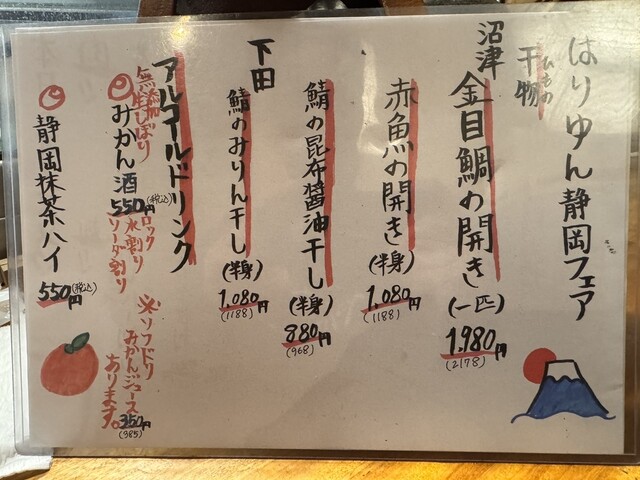 はりゆん静岡フェア
干物
ひもの
沼津
金目鯛の開き(一匹)
1,980円
(2178)
赤魚の開き(半身)
1,080円
(1188)
鯖の昆布醤油干し(半身)
880円
(968)
下田
鯖のみりん干し(半身)
1,080円
(1188)
アルコールドリンク
無添加
生しぼり
みかん酒
550円(税込)
ロック
水割り
ソーダ割り
※ソフドリ
みかんジュース
あります。
350円
(385)
静岡抹茶ハイ
550円(税込)